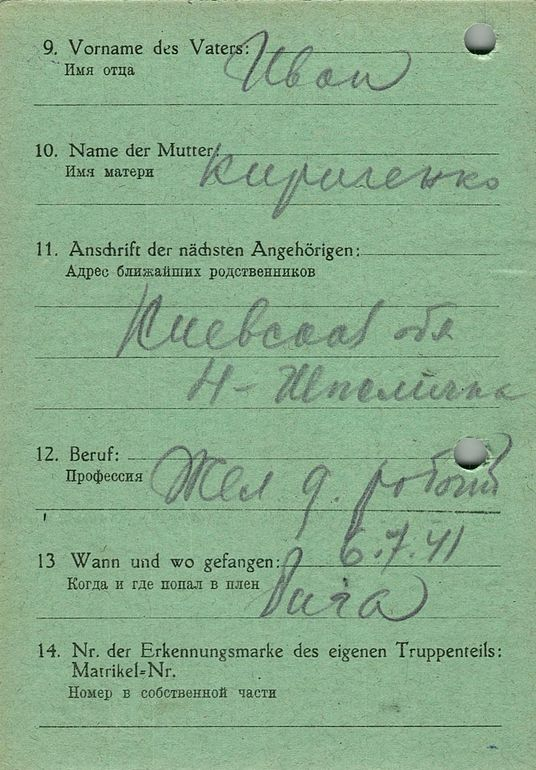 9. Vorname des Vaters:
Имя отца
Иван
10. Name der Mutter:
Имя матери
Кириленко
11. Anschrift der nächsten Angehörigen:
Адрес ближайших родственников
Киевская обл
Н-Шпеличка
12. Beruf:
Профессия
Жел д.
6.7.41
13 Wann und wo gefangen:
Когда и где попал в плен
14. Nr. der Erkennungsmarke des eigenen Truppenteils:
Matrikel=Nr.
Номер в собственной части